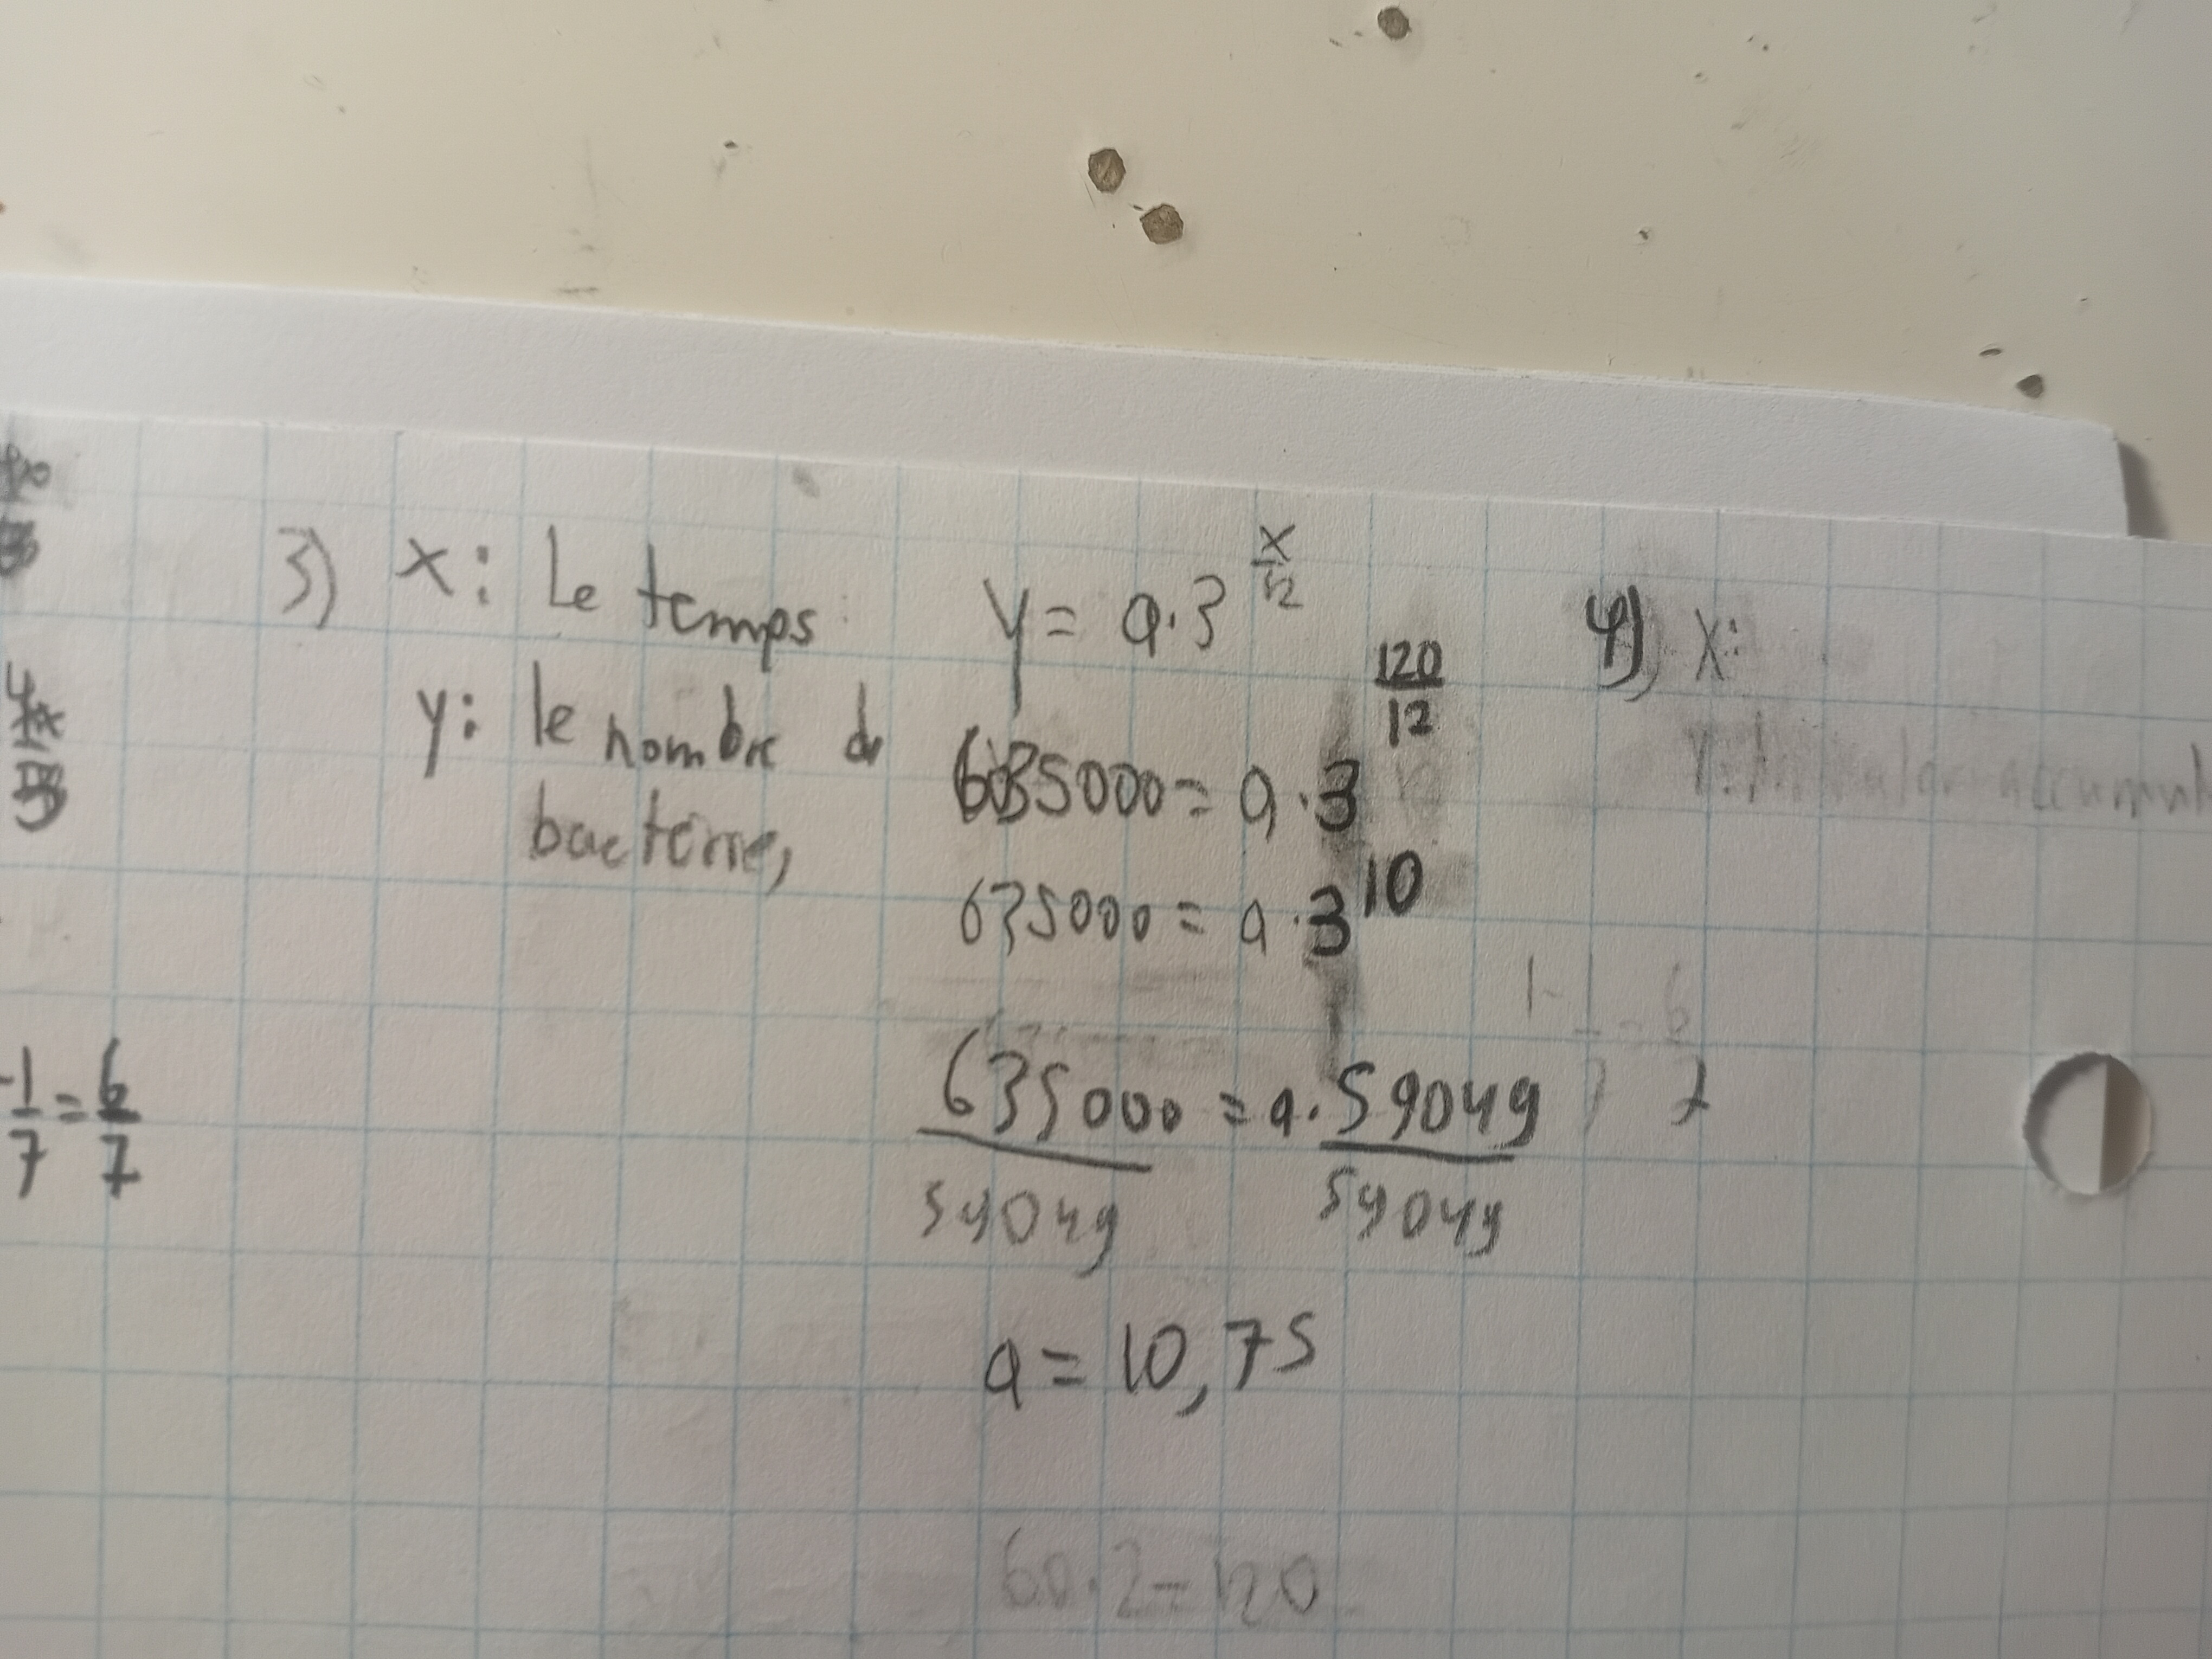 3) x: Le temps
y: le nombre de
bactérie,
y = a·3^(x/12)
635000 = a·3^(120/12)
635000 = a·3^10
635000 = a·59049
59049 59049
a = 10,75
60·2=120
4) x:
accumul
1- = 6
7
-1/7 = 6/7